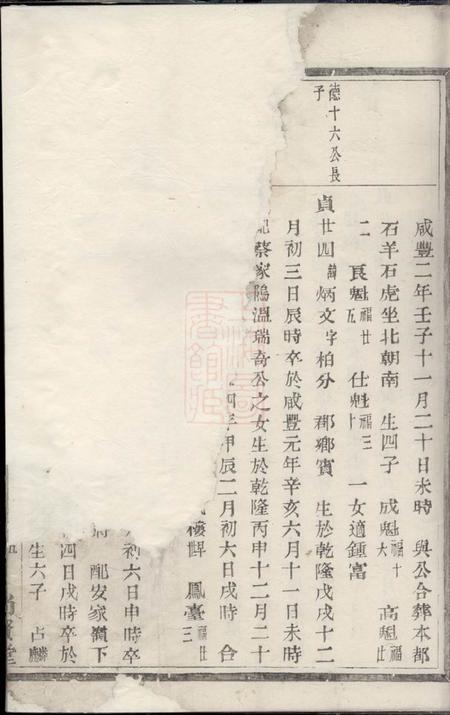 德十六公長
子
咸豐二年壬子十一月二十日未時 與公合葬本都
石羊石虎坐北朝南 生四子 成魁福十六 高魁福廿
二 良魁福廿五 仕魁福三十 一女適鍾富
貞廿四諱炳文字柏分 郡鄉賓 生於乾隆戊戌十二
月初三日辰時卒於咸豐元年辛亥六月十一日未時
配蔡家隖溫瑞奇公之女生於乾隆丙申十二月二十
四年甲辰二月初六日戌時 合
樓 鳳臺福廿三
初六日申時卒
配安家嶺下
四日戌時卒於
生六子 占麟